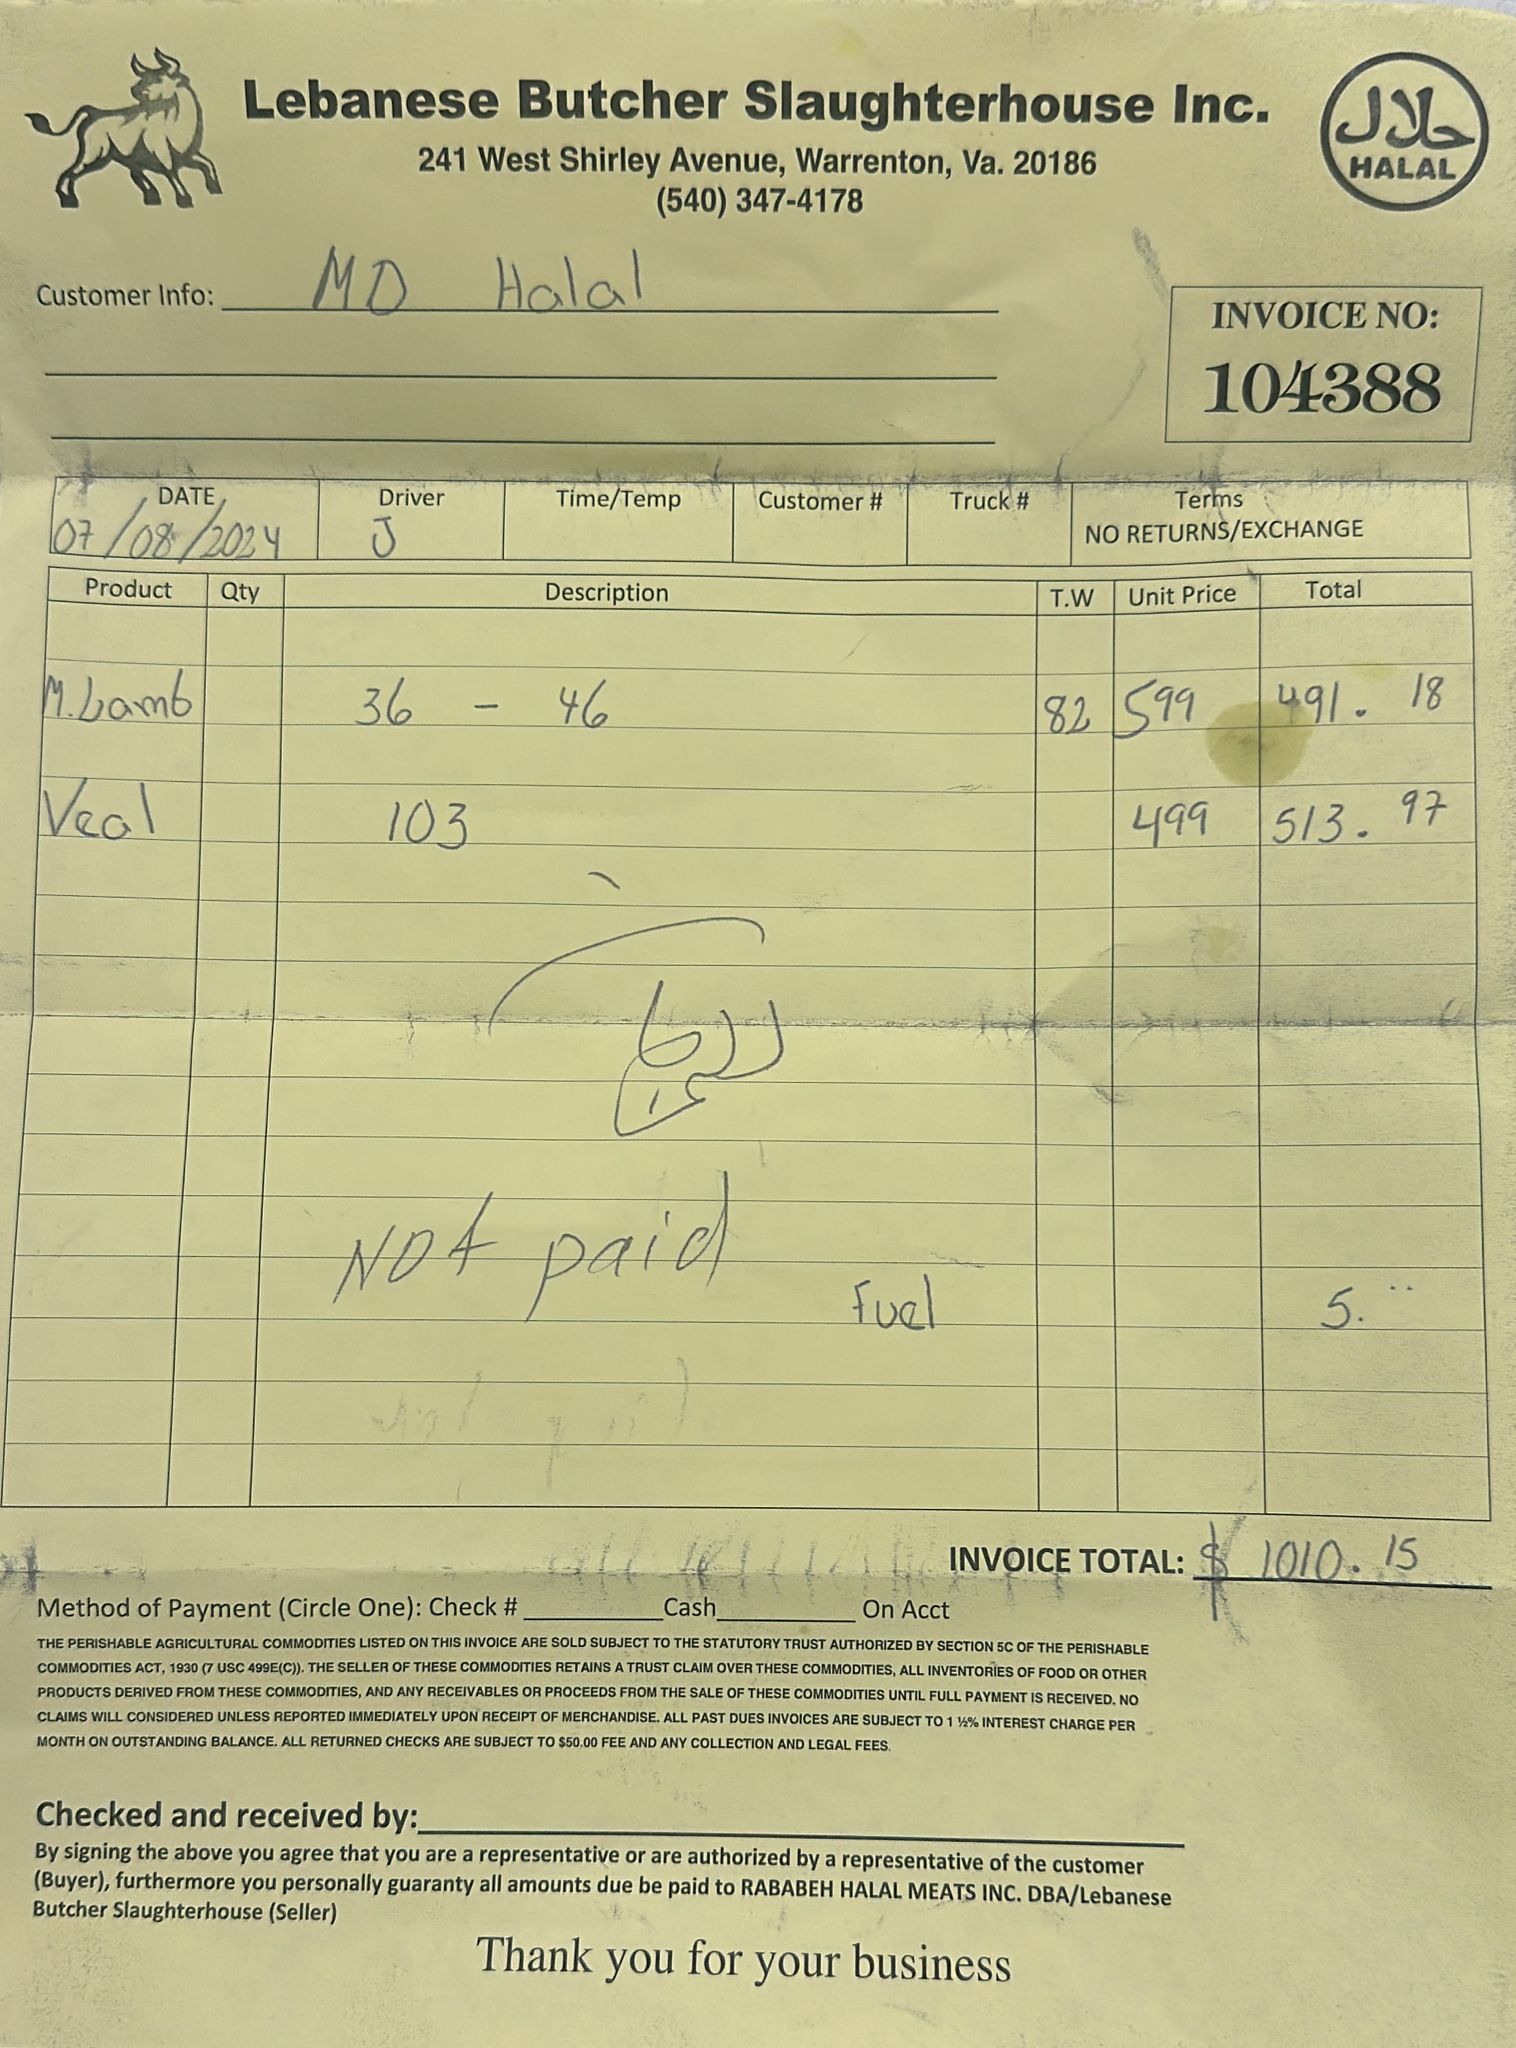 Lebanese Butcher Slaughterhouse Inc.
241 West Shirley Avenue, Warrenton, Va. 20186
(540) 347-4178
حلال
HALAL
Customer Info: MD Halal
INVOICE NO:
104388
DATE Driver Time/Temp Customer # Truck # Terms
07/08/2024 J NO RETURNS/EXCHANGE
Product Qty Description T.W Unit Price Total
M.Lamb 36 - 46 82 599 491. 18
Veal 103 499 513. 97
Not paid
Fuel 5.
INVOICE TOTAL: $ 1010. 15
Method of Payment (Circle One): Check # Cash On Acct
THE PERISHABLE AGRICULTURAL COMMODITIES LISTED ON THIS INVOICE ARE SOLD SUBJECT TO THE STATUTORY TRUST AUTHORIZED BY SECTION 5C OF THE PERISHABLE
COMMODITIES ACT, 1930 (7 USC 499E(C)). THE SELLER OF THESE COMMODITIES RETAINS A TRUST CLAIM OVER THESE COMMODITIES, ALL INVENTORIES OF FOOD OR OTHER
PRODUCTS DERIVED FROM THESE COMMODITIES, AND ANY RECEIVABLES OR PROCEEDS FROM THE SALE OF THESE COMMODITIES UNTIL FULL PAYMENT IS RECEIVED. NO
CLAIMS WILL CONSIDERED UNLESS REPORTED IMMEDIATELY UPON RECEIPT OF MERCHANDISE. ALL PAST DUES INVOICES ARE SUBJECT TO 1 ½% INTEREST CHARGE PER
MONTH ON OUTSTANDING BALANCE. ALL RETURNED CHECKS ARE SUBJECT TO $50.00 FEE AND ANY COLLECTION AND LEGAL FEES.
Checked and received by:
By signing the above you agree that you are a representative or are authorized by a representative of the customer
(Buyer), furthermore you personally guaranty all amounts due be paid to RABABEH HALAL MEATS INC. DBA/Lebanese
Butcher Slaughterhouse (Seller)
Thank you for your business